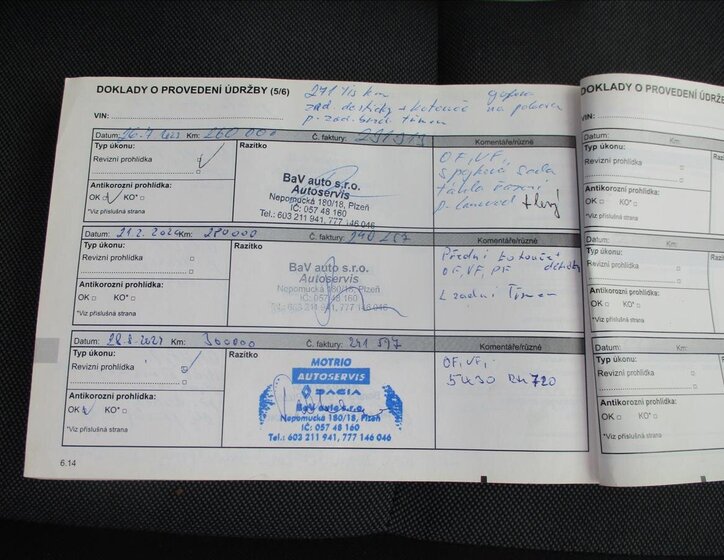 DOKLADY O PROVEDENÍ ÚDRŽBY (5/6)
271 tis km
zad. destičky + kotouče
p. zad. brzd. třmen
VIN:
Datum: 26.7.2023 Km: 260 000 Č. faktury: 231313 Komentáře/různé
Typ úkonu:
Revizní prohlídka
Antikorozní prohlídka:
OK KO*
*Viz příslušná strana
Razítko
BaV auto s.r.o.
Autoservis
Nepomucká 180/18, Plzeň
IČ: 057 48 160
Tel.: 603 211 941, 777 146 046
OF, VF,
spojková sada
táhla řazení
Datum: 21.2.2024 Km: 280000 Č. faktury: Komentáře/různé
Typ úkonu:
Revizní prohlídka
Antikorozní prohlídka:
OK KO*
*Viz příslušná strana
Razítko
BaV auto s.r.o.
Autoservis
Nepomucká 180/18, Plzeň
IČ: 057 48 160
Tel.: 603 211 941, 777 146 046
Přední kotouče+
OF, VF, PF
L zadní Třmen
Datum: Km: 300000 Č. faktury: 241 597 Komentáře/různé
Typ úkonu:
Revizní prohlídka
Antikorozní prohlídka:
OK KO*
*Viz příslušná strana
Razítko
MOTRIO
AUTOSERVIS
DACIA
BaV auto s.r.o.
Nepomucká 180/18, Plzeň
IČ: 057 48 160
Tel.: 603 211 941, 777 146 046
OF, VF,
5W30 RN 720
6.14
DOKLADY O PROVEDENÍ
VIN:
Datum:
Typ úkonu:
Revizní prohlídka
Antikorozní prohlídka:
OK KO*
*Viz příslušná strana
Datum:
Typ úkonu:
Revizní prohlídka
Antikorozní prohlídka:
OK KO*
*Viz příslušná strana
Datum:
Typ úkonu:
Revizní prohlídka
Antikorozní prohlídka:
OK KO*
*Viz příslušná strana